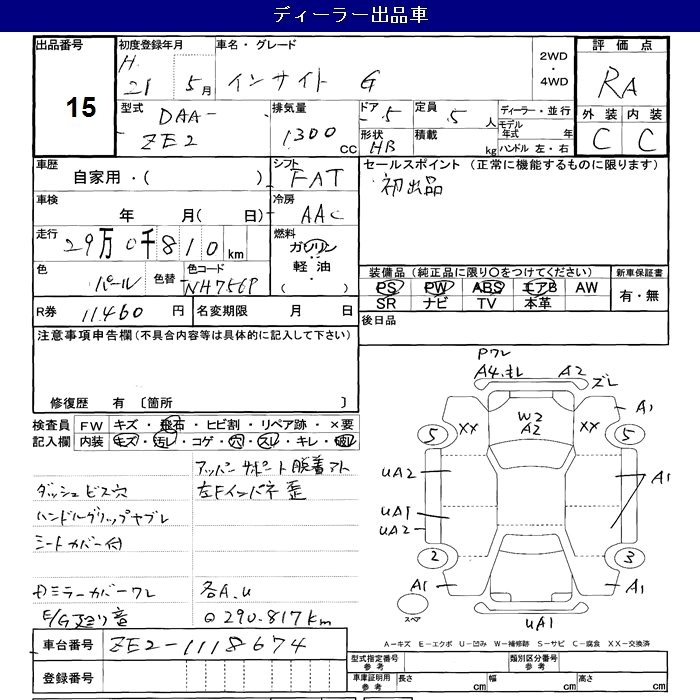 ディーラー出品車
出品番号 15
初度登録年月 H. 21 5 月
車名・グレード インサイト G
2WD ・ 4WD
評価点 RA
外装 C 内装 C
型式 DAA-ZE2
排気量 1300 CC
ドア 5 形状 HB
定員 5 人 積載 kg
ディーラー・並行
モデル年式 年
ハンドル 左・右
車歴 自家用・( )
シフト FAT
セールスポイント (正常に機能するものに限ります)
初出品
車検 年 月( 日)
冷房 AAC
走行 29万0千810 km
燃料 ガソリン 軽油 ( ・ )
色 パール 色替 色コード NH756P
装備品 (純正品に限り○をつけてください)
PS PW ABS エアB AW
SR ナビ TV 本革
新車保証書 有・無
R券 11460 円 名変期限 月 日
後日品
注意事項申告欄 (不具合内容等は具体的に記入して下さい)
修復歴 有 〔箇所 〕
検査員記入欄
FW キズ・飛石・ヒビ割・リペア跡・×要
内装 キズ・汚レ・コゲ・穴・スレ・キレ・破レ
アッパーサポート脱着アト
ダッシュビス穴 左Fインパネ歪
ハンドルグリップヤブレ
シートカバー付
ミラーカバーワレ 各A.U
E/G 音 290.817km
車台番号 ZE2-1118674
登録番号
Pワレ
A4.キレ A2 ズレ
W2 A2
XX XX A1
5 5
UA2
UA1
UA2
A1
2 3
A1 A1
スペア
UA1
A-キズ E-エクボ U-凹み W-補修跡 S-サビ C-腐食 XX-交換済
型式指定番号 参考 類別区分番号 参考
車庫証明用 参考 長さ cm 幅 cm 高さ cm